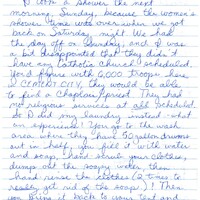 I took a shower the next
morning, Sunday, because the women's
shower time was over when we got
back on Saturday night. We had
the day off on Sunday, and I was
a bit disappointed that they didn't
have any Catholic Church scheduled.
You'd figure with 6,000 troops here
@ CEMENT CITY, they would be able
to find a Chaplain/priest. They had
no religious services at all scheduled.
So I did my laundry instead - what
an experience! You go to the wash
area, open these 50 gallon drums
cut in half, you fill it with water
and soap, hand scrub your clothes,
dump out the soapy water then
hand rinse the clothes (2 times to
really get rid of the soap)! Then
you bring it back to your tent and